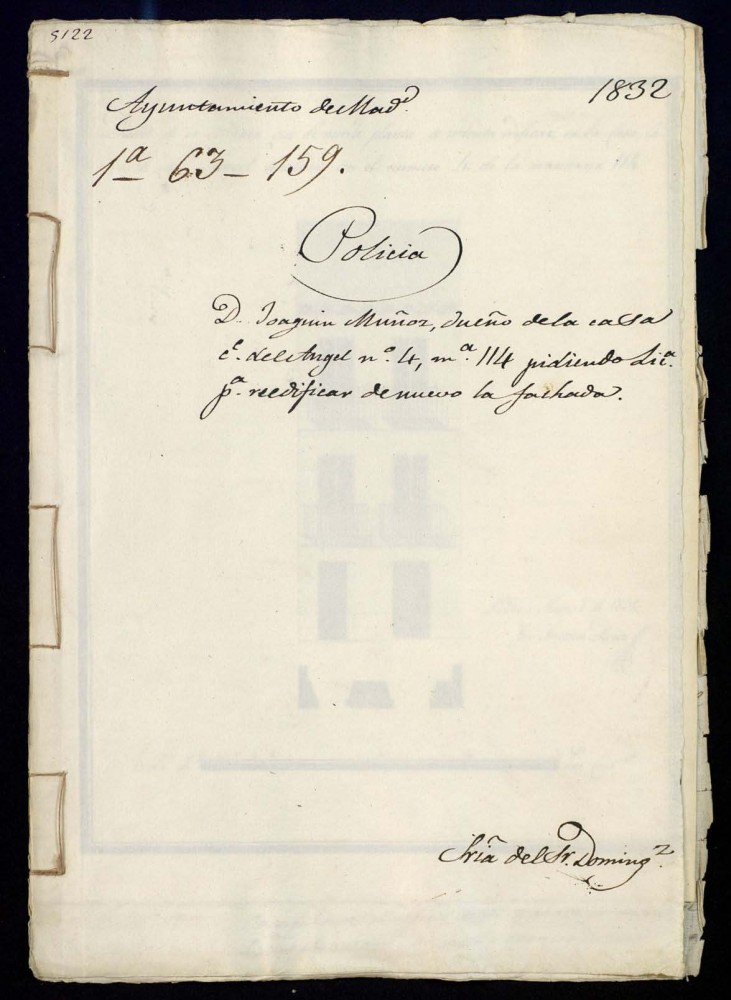 5122
Ayuntamiento de Mad.d
1832
1a 63 - 159.
Policia
D. Joaquin Muñoz, dueño dela casa
c.e del Angel n.o 4, m.a 114 pidiendo Lic.a
p.a reedificar de nuevo la fachada.
Sria del Sr. Doming.z